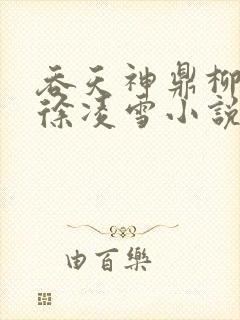 吞天神鼎柳
徐凌雪小說
由百樂